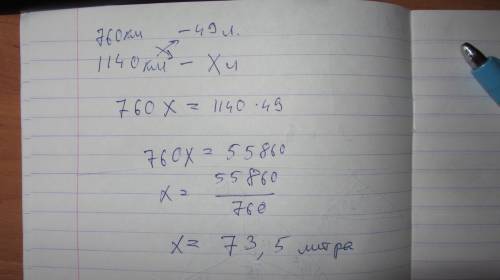 760км - 49 л.
1140км - X л
760X = 1140 · 49
760X = 55860
x = 55860
760
x = 73,5 литра